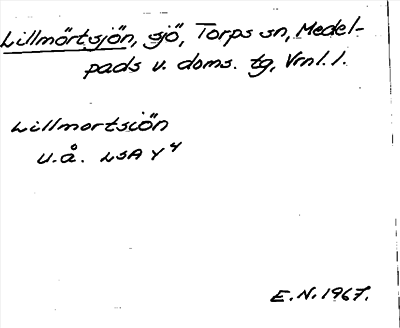 Lillmörtsjön, sjö, Torps sn, Medel-
pads v. doms. tg, Vrnl. l.
Lillmortsiön
u.å. LSA Y 4
E.N. 1967.